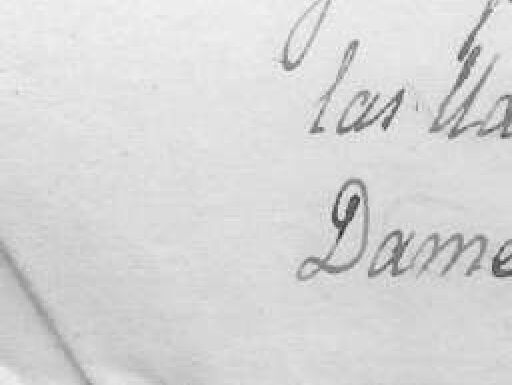 las lla
Dame